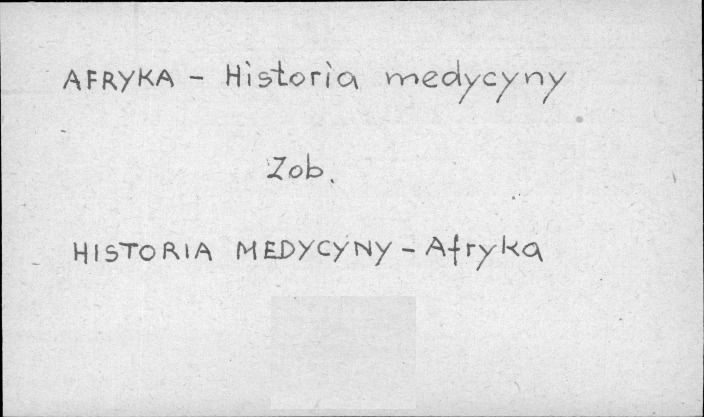 AFRYKA - Historia medycyny
Zob.
HISTORIA MEDYCYNY - Afryka